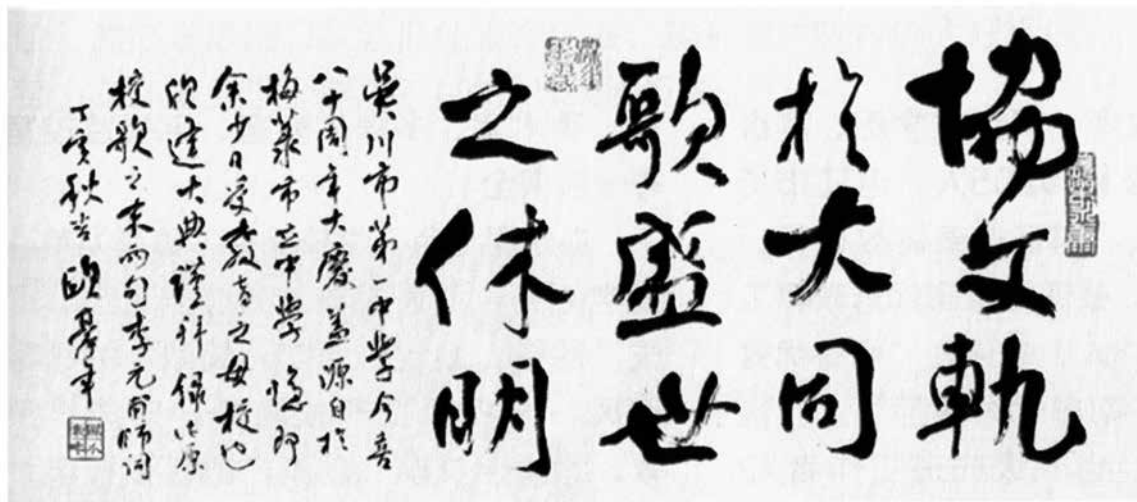 協文軌
於大同
歌盛世
之休明
吳川市第一中學今喜
八十周年大慶蓋源自於
梅菉市立中學即
余少日受教育之母校也
欣逢大典謹拜錄此原
校歌之末兩句李元甫師詞
丁亥秋歐豪年